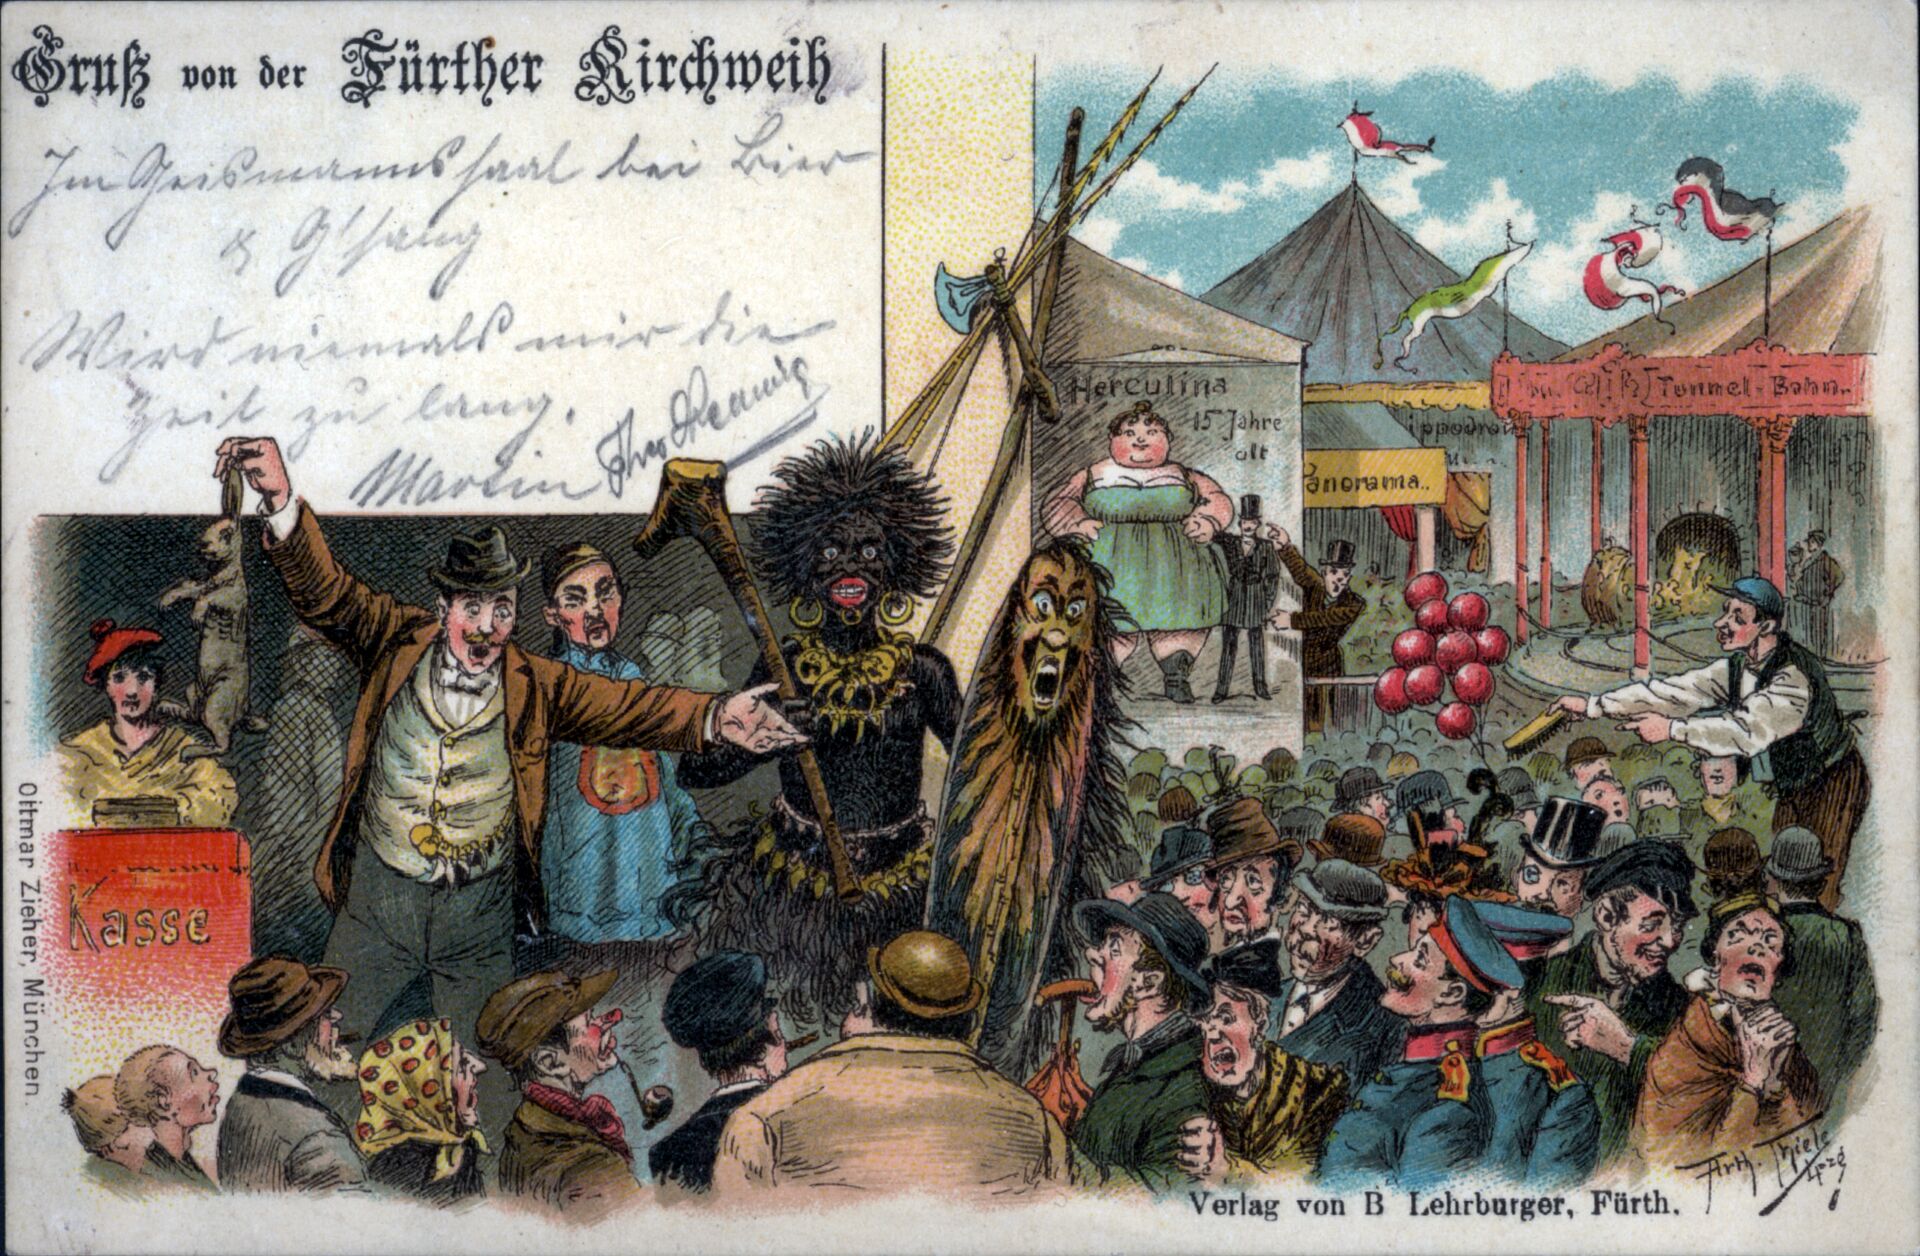 Gruß von der Fürther Kirchweih
Im Geismannssaal bei Bier
& G'sang
Wird niemals mir die
Zeit zu lang.
Martin Theo
Herculina
15 Jahre
alt
Tunnel-Bahn.
ippodrom
Panorama..
Kasse
Ottmar Zieher, München.
Arth. Thiele
Lpzg
Verlag von B Lehrburger, Fürth.